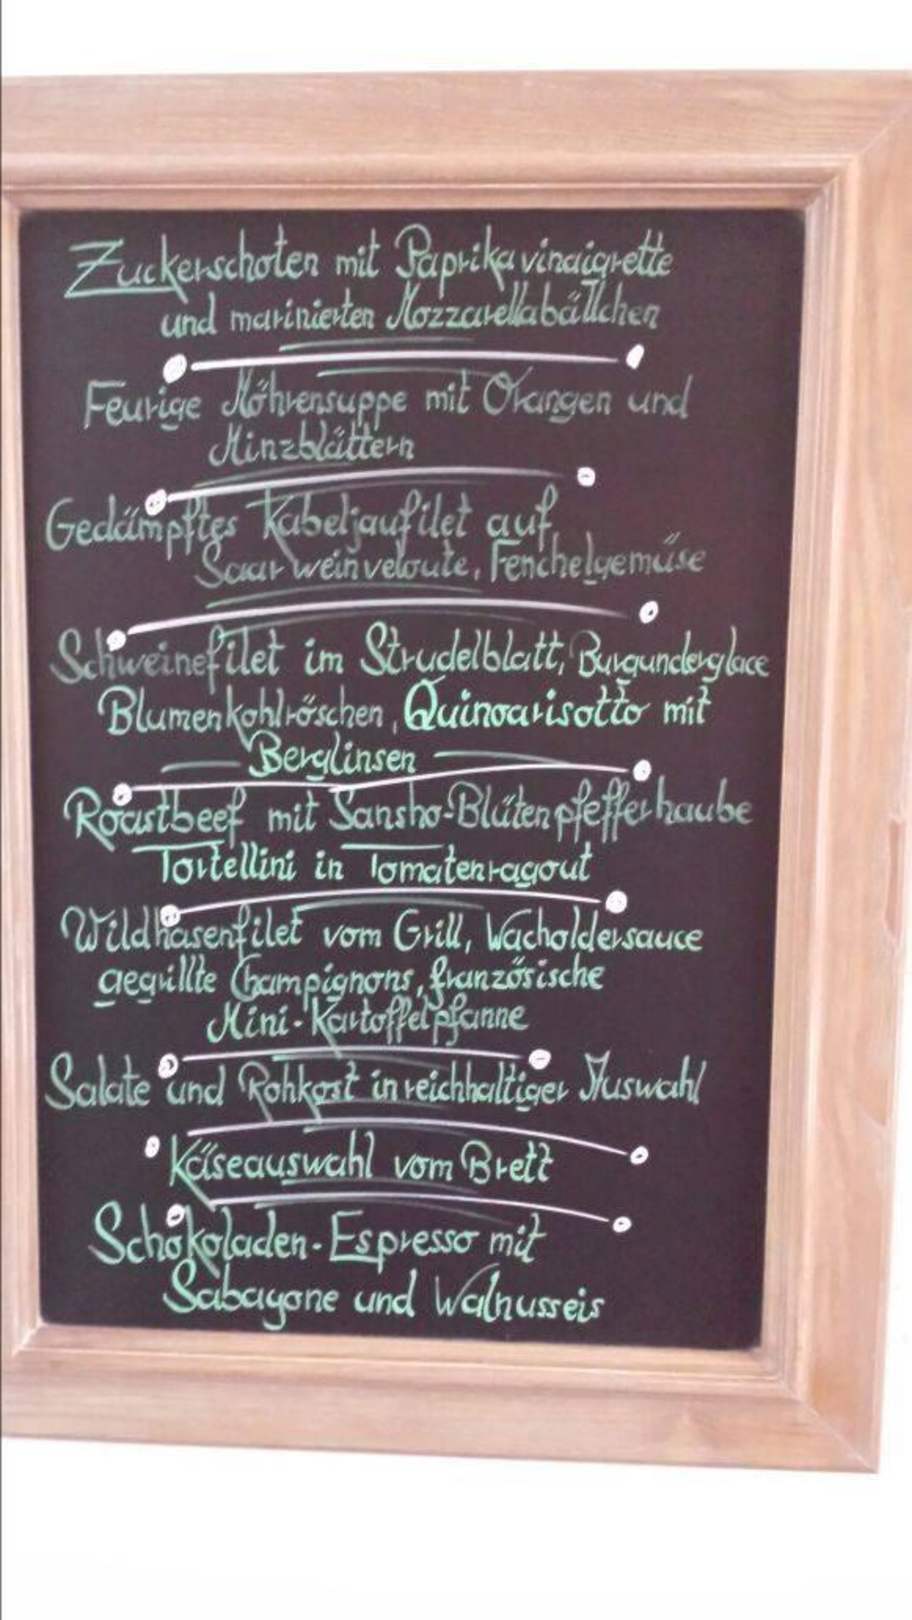 Zuckerschoten mit Paprikavinaigrette
und marinierten Mozzarellabällchen
Feurige Möhrensuppe mit Orangen und
Minzblättern
Gedämpftes Kabeljaufilet auf
Saarweinveloute, Fenchelgemüse
Schweinefilet im Strudelblatt, Burgunderglace
Blumenkohlröschen, Quinoarisotto mit
Berglinsen
Roastbeef mit Sansho-Blütenpfefferhaube
Tortellini in Tomatenragout
Wildhasenfilet vom Grill, Wacholdersauce
gegrillte Champignons, französische
Mini-Kartoffelpfanne
Salate und Rohkost in reichhaltiger Auswahl
Käseauswahl vom Brett
Schokoladen-Espresso mit
Sabayone und Walnusseis